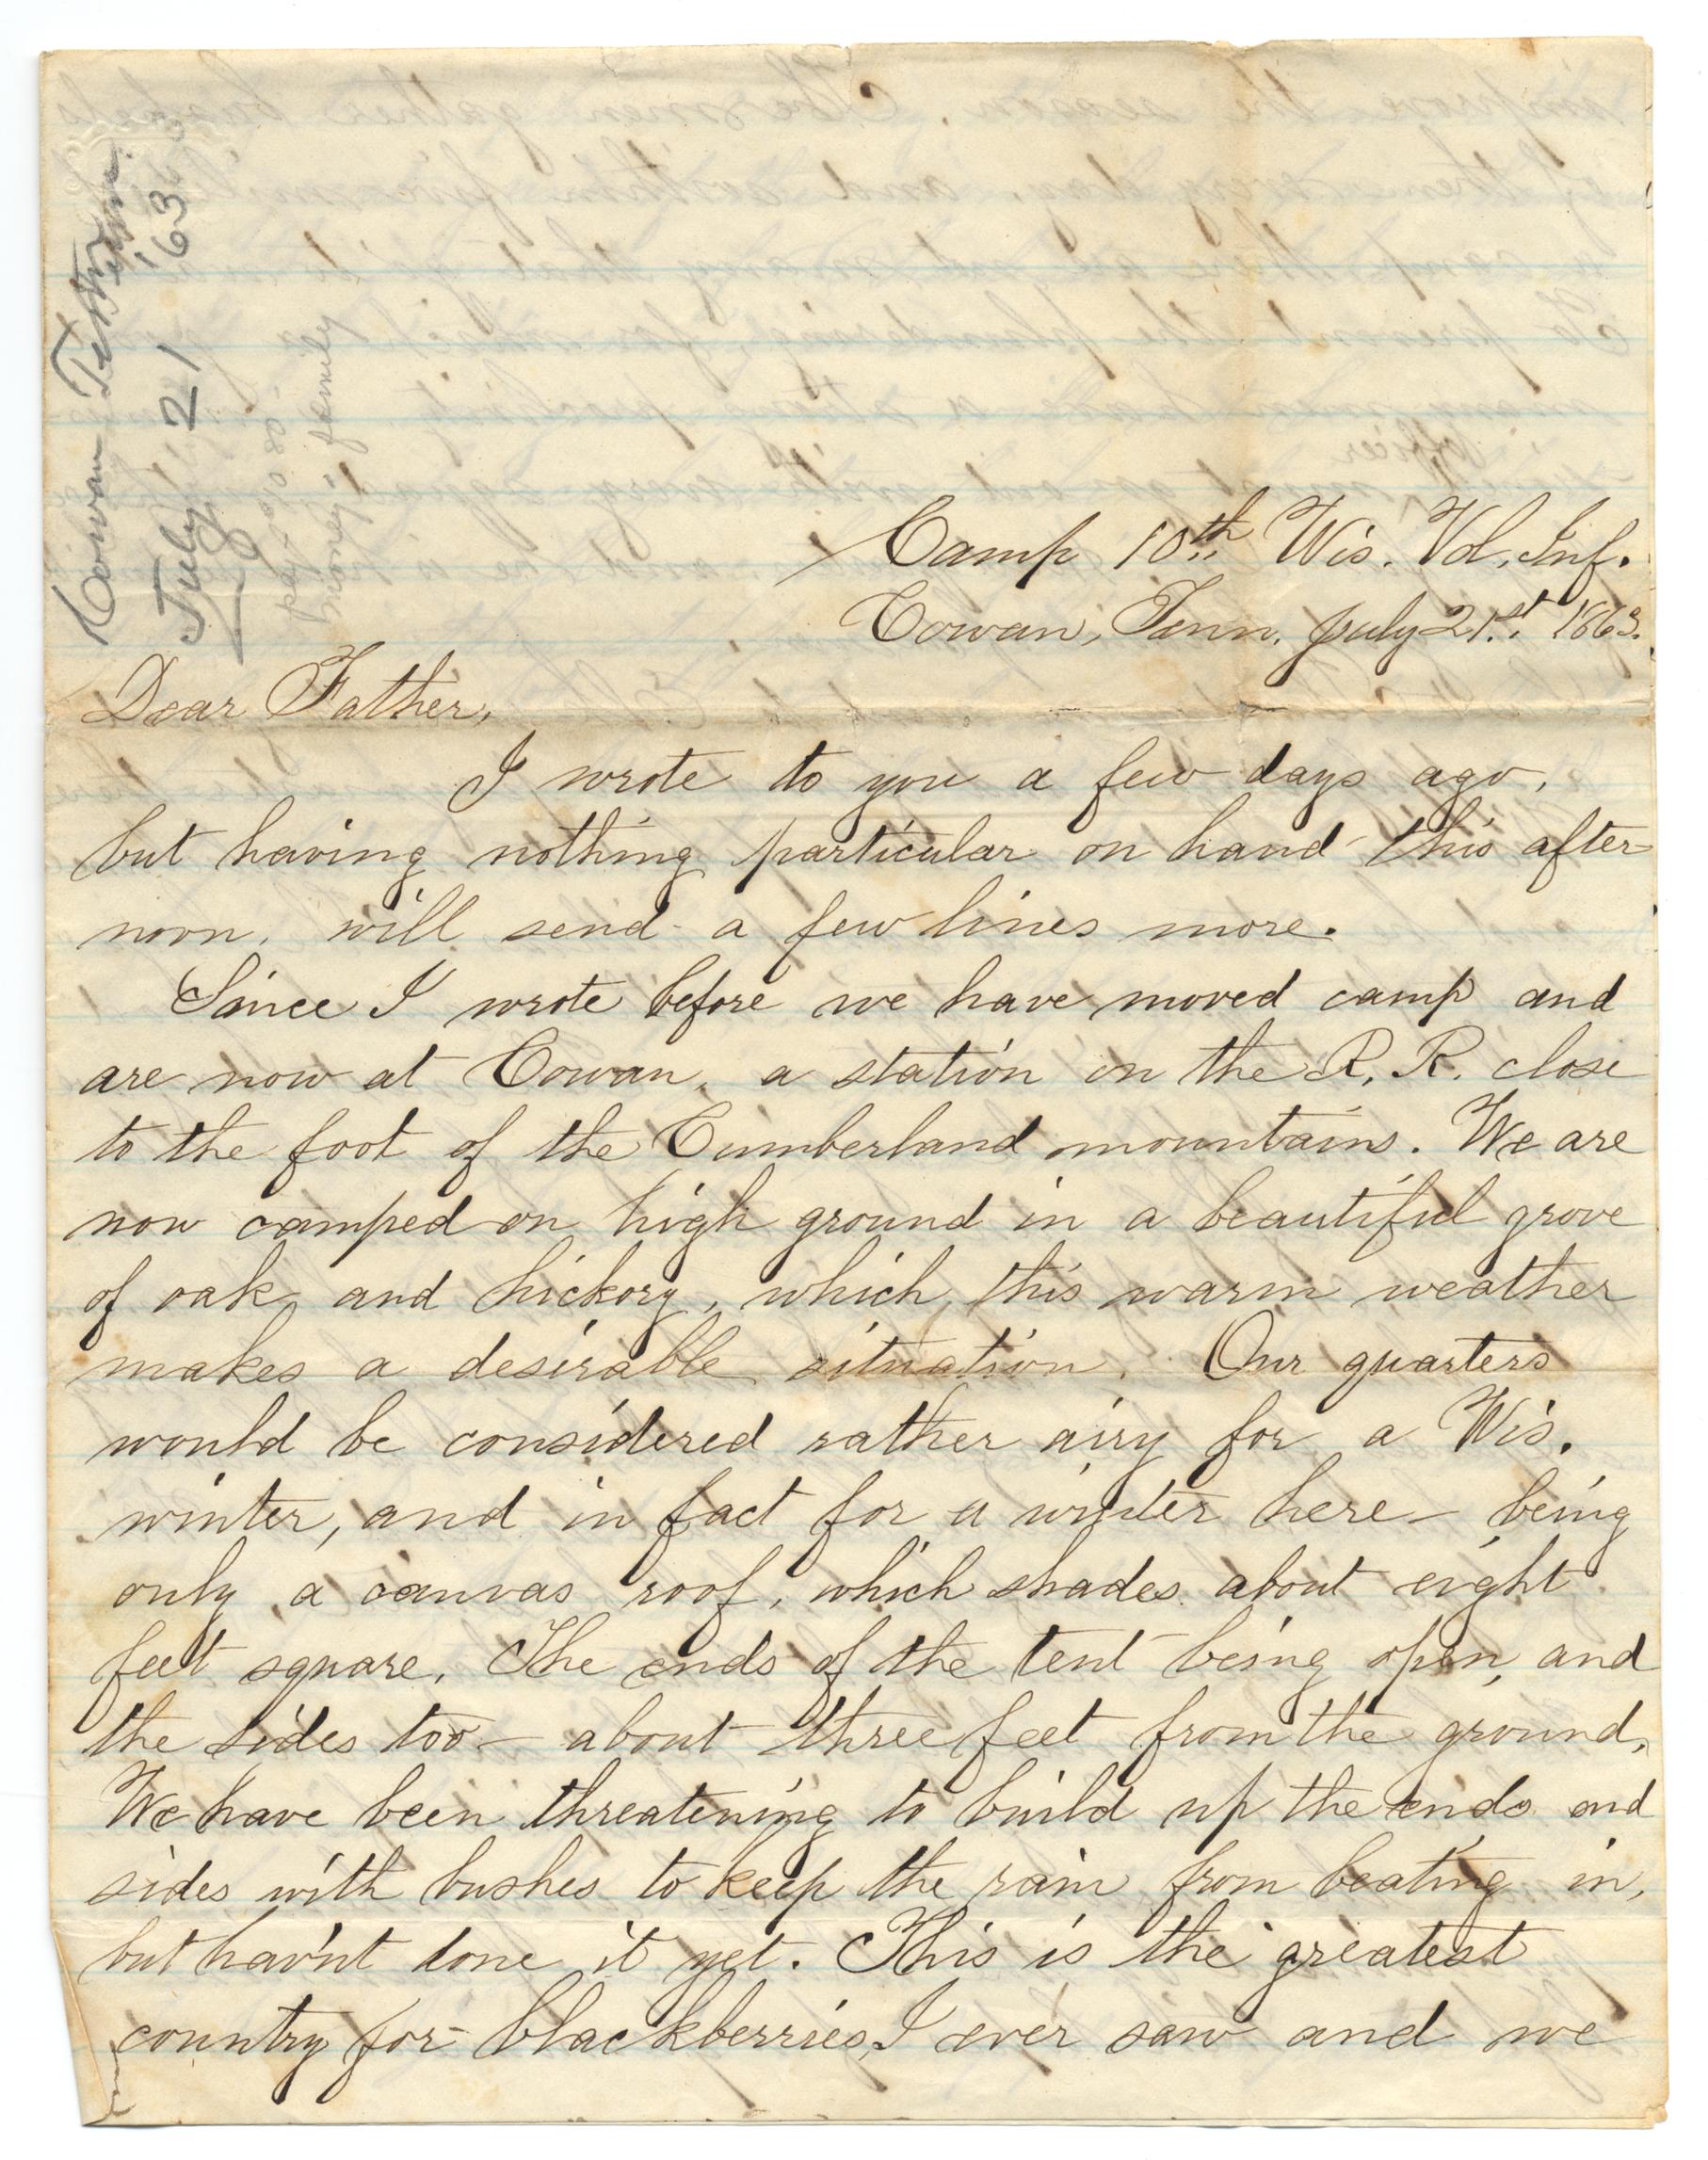 Cowan Tenn.
July 21 '63
money - family
Camp 10th Wis. Vol. Inf.
Cowan, Tenn. July 21st 1863.
Dear Father,
I wrote to you a few days ago,
but having nothing particular on hand this after-
noon, will send a few lines more.
Since I wrote before we have moved camp and
are now at Cowan, a station on the R. R. close
to the foot of the Cumberland mountains. We are
now camped on high ground in a beautiful grove
of oak and hickory, which this warm weather
makes a desirable situation. Our quarters
would be considered rather airy for a Wis.
winter, and in fact for a winter here — being
only a canvas roof, which shades about eight
feet square. The ends of the tent being open, and
the sides too — about three feet from the ground.
We have been threatening to build up the ends and
sides with bushes to keep the rain from beating in,
but hav'nt done it yet. This is the greatest
country for blackberries, I ever saw and we